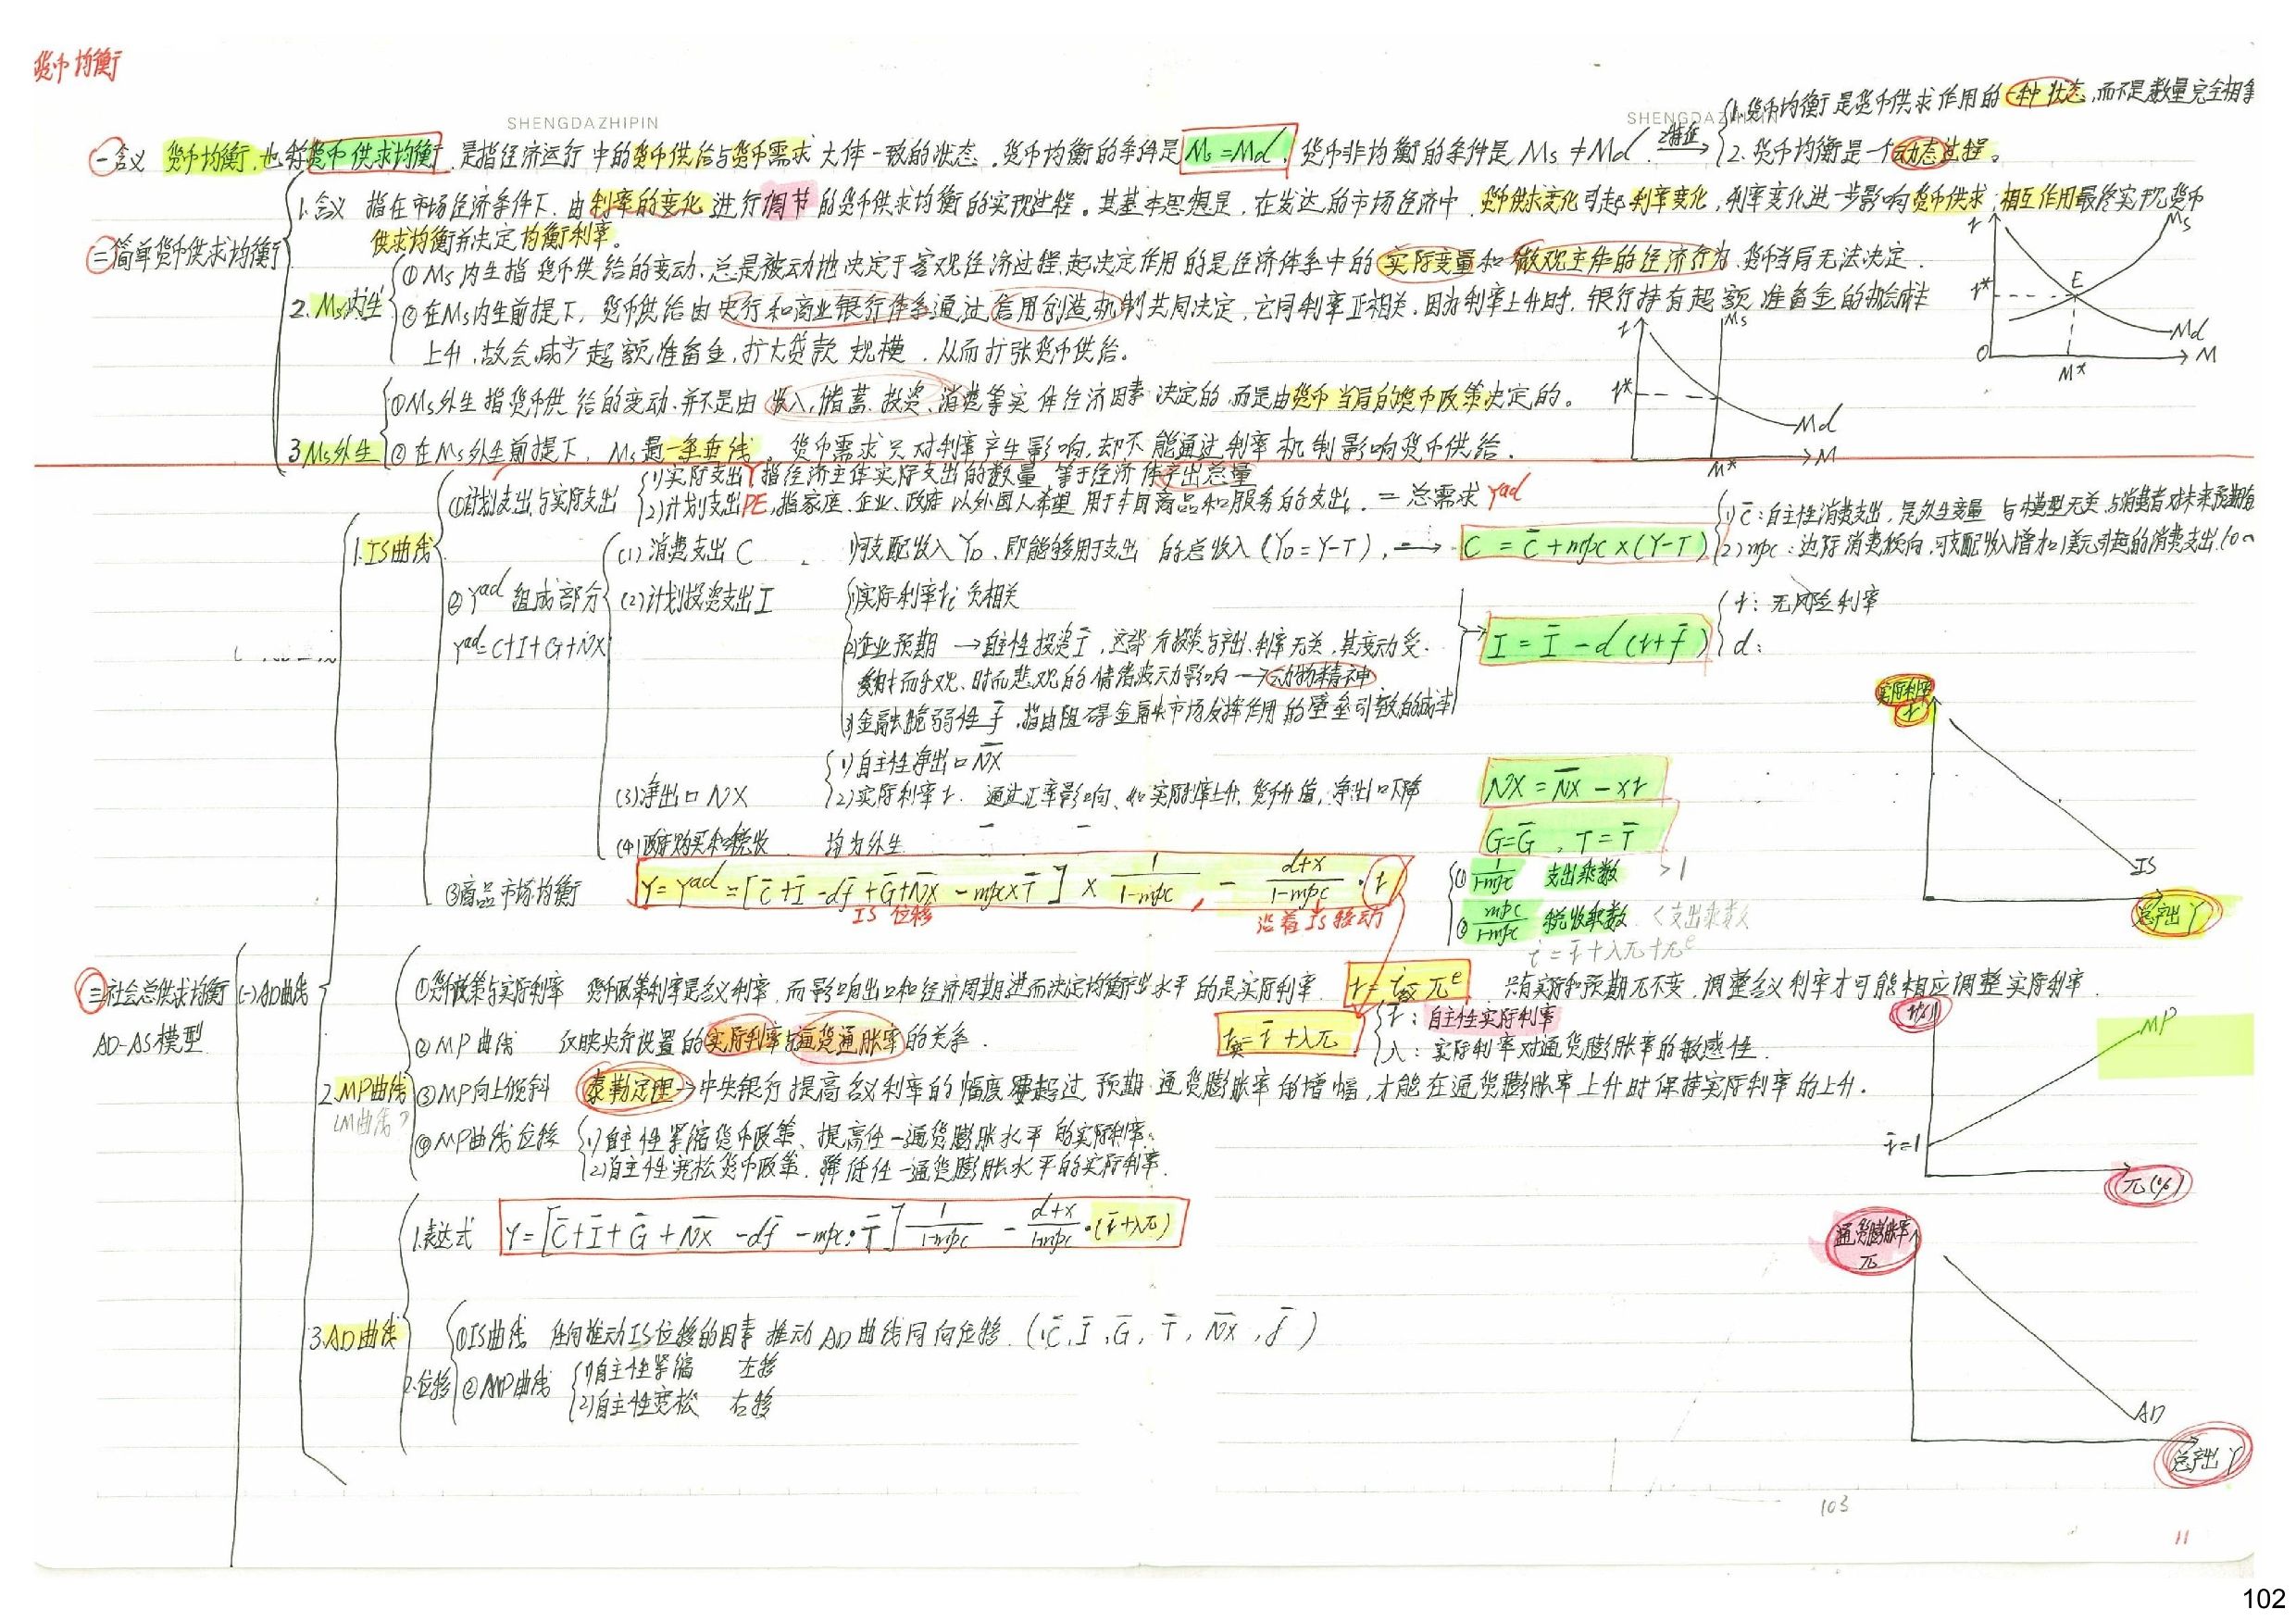 货币均衡
SHENGDAZHIPIN
SHENGDAZHIPIN
一含义 货币均衡,也称货币供求均衡,是指经济运行中的货币供给与货币需求大体一致的状态。货币均衡的条件是 Ms=Md,货币非均衡的条件是 Ms≠Md. 特征→
1.货币均衡是货币供求作用的一种状态,而不是数量完全相等
2.货币均衡是一个动态过程。
二简单货币供求均衡
1.含义 指在市场经济条件下,由利率的变化进行调节的货币供求均衡的实现过程。其基本思想是,在发达的市场经济中,货币供求变化引起利率变化,利率变化进一步影响货币供求,相互作用最终实现货币
供求均衡并决定均衡利率。
2.Ms内生
①Ms内生指货币供给的变动,总是被动地决定于客观经济过程,起决定作用的是经济体系中的实际变量和微观主体的经济行为,货币当局无法决定.
②在Ms内生前提下,货币供给由央行和商业银行体系通过信用创造机制共同决定,它同利率正相关,因为利率上升时,银行持有超额准备金的机会成本
上升,故会减少超额准备金,扩大贷款规模,从而扩张货币供给。
3.Ms外生
①Ms外生指货币供给的变动,并不是由收入,储蓄、投资、消费等实体经济因素决定的,而是由货币当局的货币政策决定的。
②在Ms外生前提下,Ms是一条垂线,货币需求只对利率产生影响,却不能通过利率机制影响货币供给.
r Ms r* Md M* M
r Ms r* E Md O M* M
三社会总供求均衡
AD-AS模型
(一)AD曲线
1.IS曲线
①计划支出与实际支出
1)实际支出Y指经济主体实际支出的数量,等于经济体产出总量
2)计划支出PE,指家庭、企业、政府以外国人希望用于本国商品和服务的支出. = 总需求 Yad
②Yad组成部分
Yad=C+I+G+NX
(1)消费支出C 1)可支配收入YD,即能够用于支出的总收入(YD=Y-T), → C=C̄+mpc×(Y-T)
1)C̄:自主性消费支出,是外生变量 与模型无关,与消费者对未来预期有
2)mpc:边际消费倾向,可支配收入增加1美元引起的消费支出(0~
(2)计划投资支出I
1)实际利率ri 负相关
2)企业预期→自主性投资Ī,这部分投资与产出、利率无关,其变动受
时而乐观、时而悲观的情绪波动影响→动物精神
3)金融脆弱性f̄,指由阻碍金融市场发挥作用的壁垒引致的成本
I=Ī-d(r+f̄)
r:无风险利率
d:
(3)净出口NX
1)自主性净出口N̄X̄
2)实际利率r. 通过汇率影响、如实际利率上升,货币升值,净出口下降
NX=N̄X̄-xr
(4)政府购买和税收 均为外生
G=Ḡ,T=T̄
③商品市场均衡 Y=Yad=[C̄+Ī-df̄+Ḡ+N̄X̄-mpc×T̄]×1/(1-mpc) - (d+x)/(1-mpc)·r
IS位移 沿着IS移动
①1/(1-mpc) 支出乘数 >1
②mpc/(1-mpc) 税收乘数 <支出乘数
i=r̄+λπ+πe
实际利率 r IS 总产出Y
2.MP曲线
LM曲线?
①货币政策与实际利率 货币政策利率是名义利率,而影响出口和经济周期进而决定均衡产出水平的是实际利率. r=i-πe 只有实际和预期π不变,调整名义利率才可能相应调整实际利率.
②MP曲线 反映央行设置的实际利率与通货通胀率的关系. r实=r̄+λπ
r̄:自主性实际利率
λ:实际利率对通货膨胀率的敏感性.
③MP向上倾斜 泰勒定理→中央银行提高名义利率的幅度要超过预期通货膨胀率的增幅,才能在通货膨胀率上升时保持实际利率的上升.
④MP曲线位移
1)自主性紧缩货币政策、提高任一通货膨胀水平的实际利率.
2)自主性宽松货币政策.降低任一通货膨胀水平的实际利率.
r(%) MP r̄=1 π(%)
3.AD曲线
1.表达式 Y=[C̄+Ī+Ḡ+N̄X̄-df̄-mpc·T̄]1/(1-mpc) - (d+x)/(1-mpc)·(r̄+λπ)
2.位移
①IS曲线 任何推动IS位移的因素推动AD曲线同向位移.(C̄,Ī,Ḡ,T̄,N̄X̄,f̄)
②MP曲线
1)自主性紧缩 左移
2)自主性宽松 右移
通货膨胀率 π AD 总产出Y
103
11
102